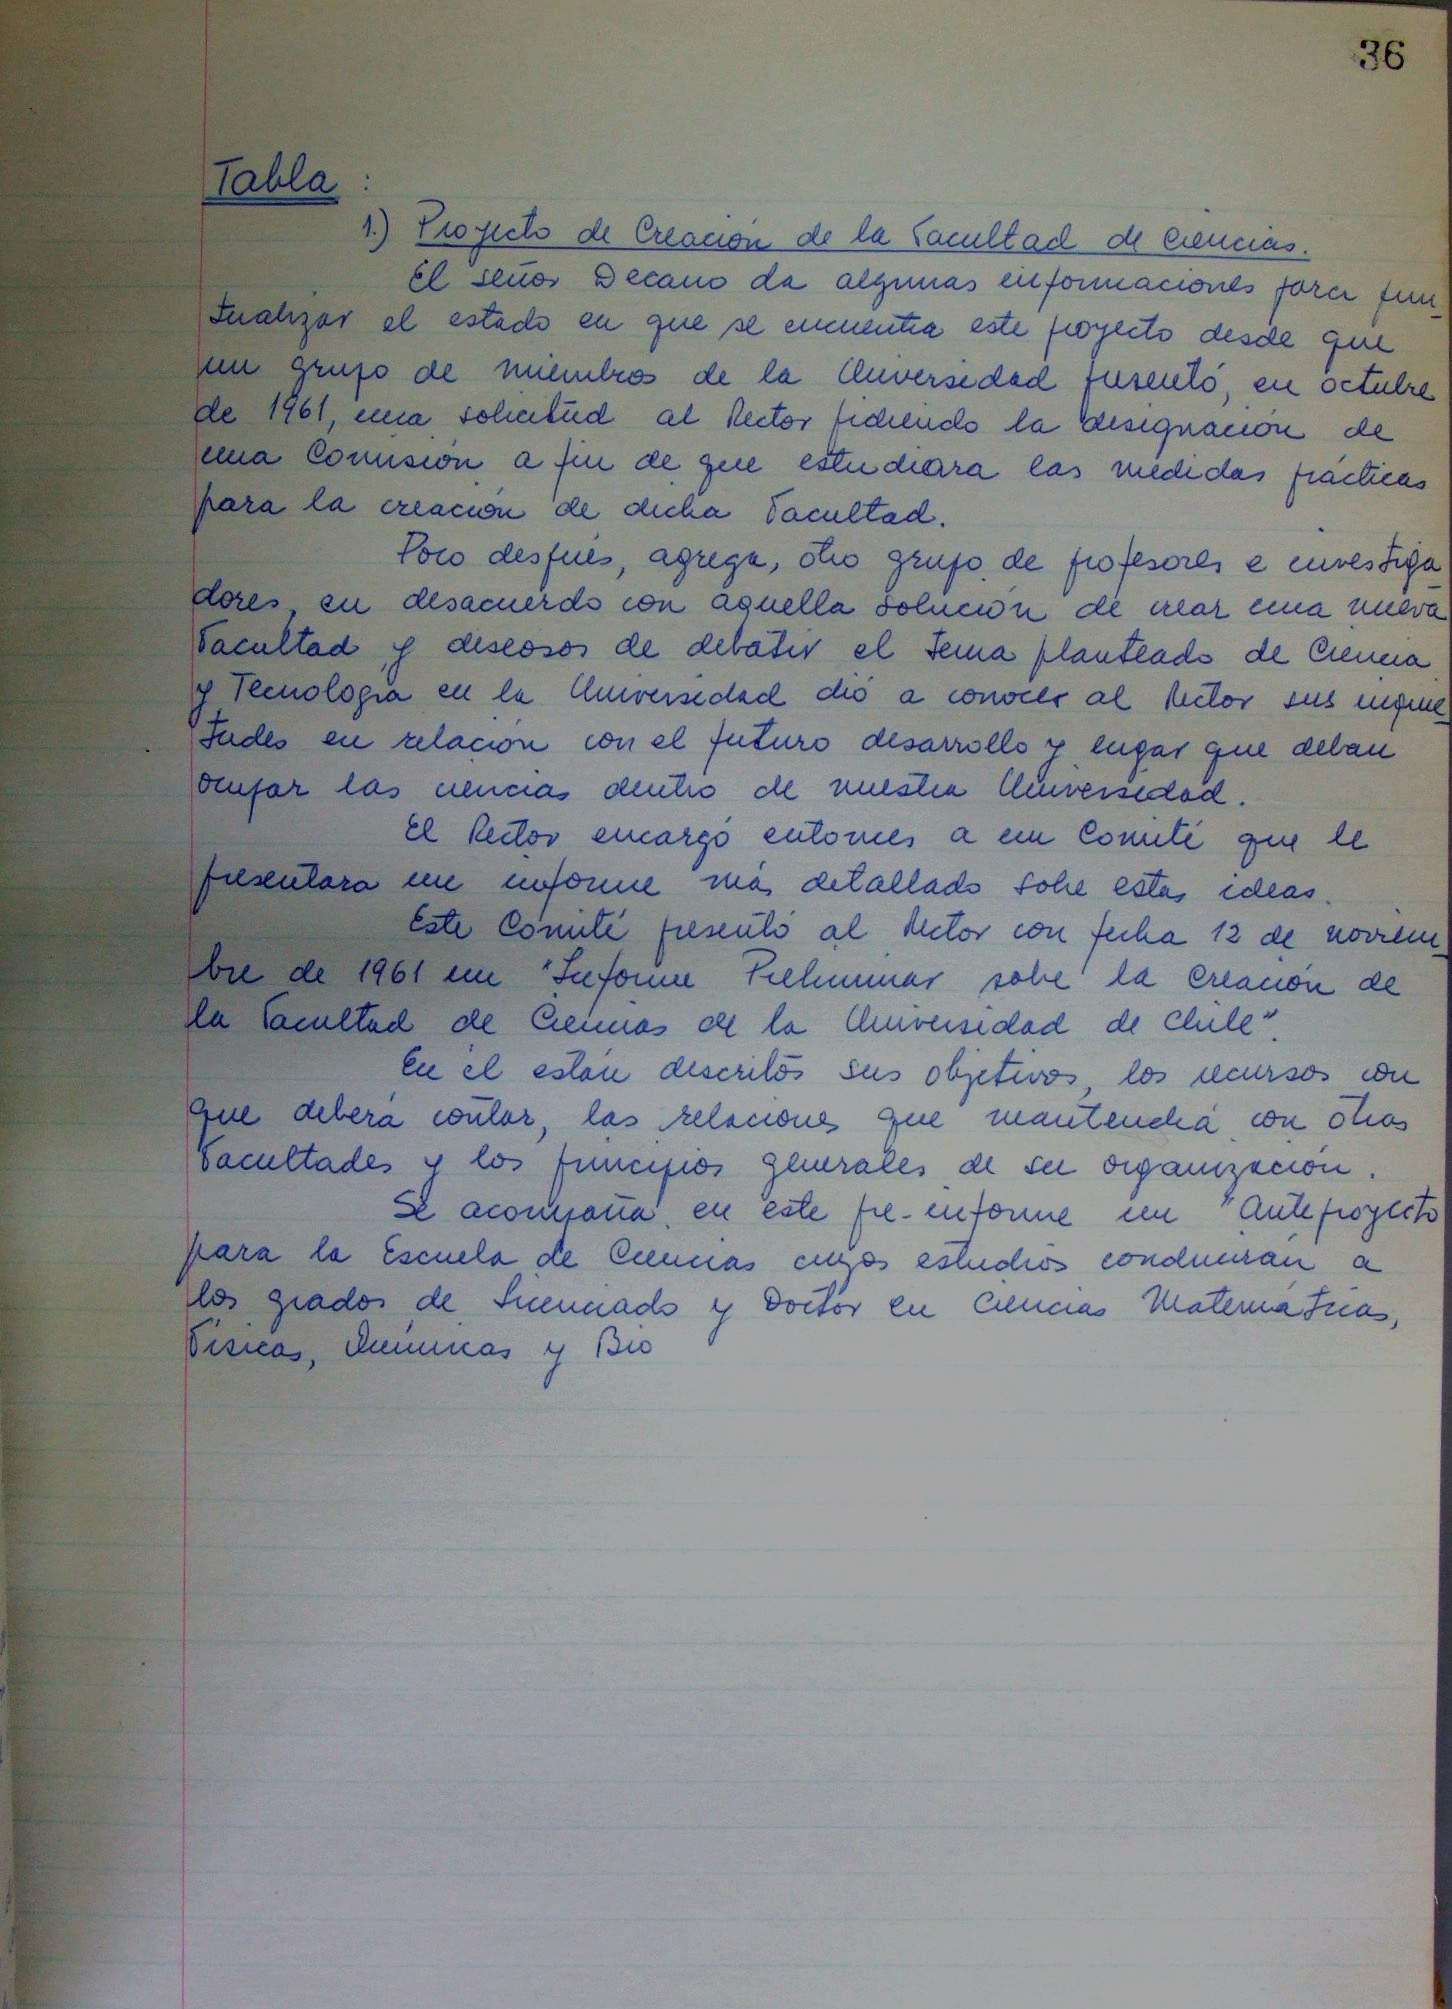 36
Tabla :
1.) Proyecto de Creación de la Facultad de Ciencias.
El señor Decano da algunas informaciones para pun_
tualizar el estado en que se encuentra este proyecto desde que
un grupo de miembros de la Universidad presentó, en octubre
de 1961, una solicitud al Rector pidiendo la designación de
una Comisión a fin de que estudiara las medidas prácticas
para la creación de dicha Facultad.
Poco después, agrega, otro grupo de profesores e investiga_
dores, en desacuerdo con aquella solución de crear una nueva
Facultad y deseosos de debatir el tema planteado de Ciencia
y Tecnología en la Universidad dió a conocer al Rector sus inquie_
tudes en relación con el futuro desarrollo y lugar que deban
ocupar las ciencias dentro de nuestra Universidad.
El Rector encargó entonces a un Comité que le
presentara un informe más detallado sobre estas ideas.
Este Comité presentó al Rector con fecha 12 de noviem_
bre de 1961 un "Informe Preliminar sobre la Creación de
la Facultad de Ciencias de la Universidad de Chile".
En él están descritos sus objetivos, los recursos con
que deberá contar, las relaciones que mantendrá con otras
Facultades y los principios generales de su organización.
Se acompaña en este pre-informe un "Anteproyecto
para la Escuela de Ciencias cuyos estudios conducirán a
los grados de Licenciado y Doctor en Ciencias Matemáticas,
Físicas, Químicas y Bio